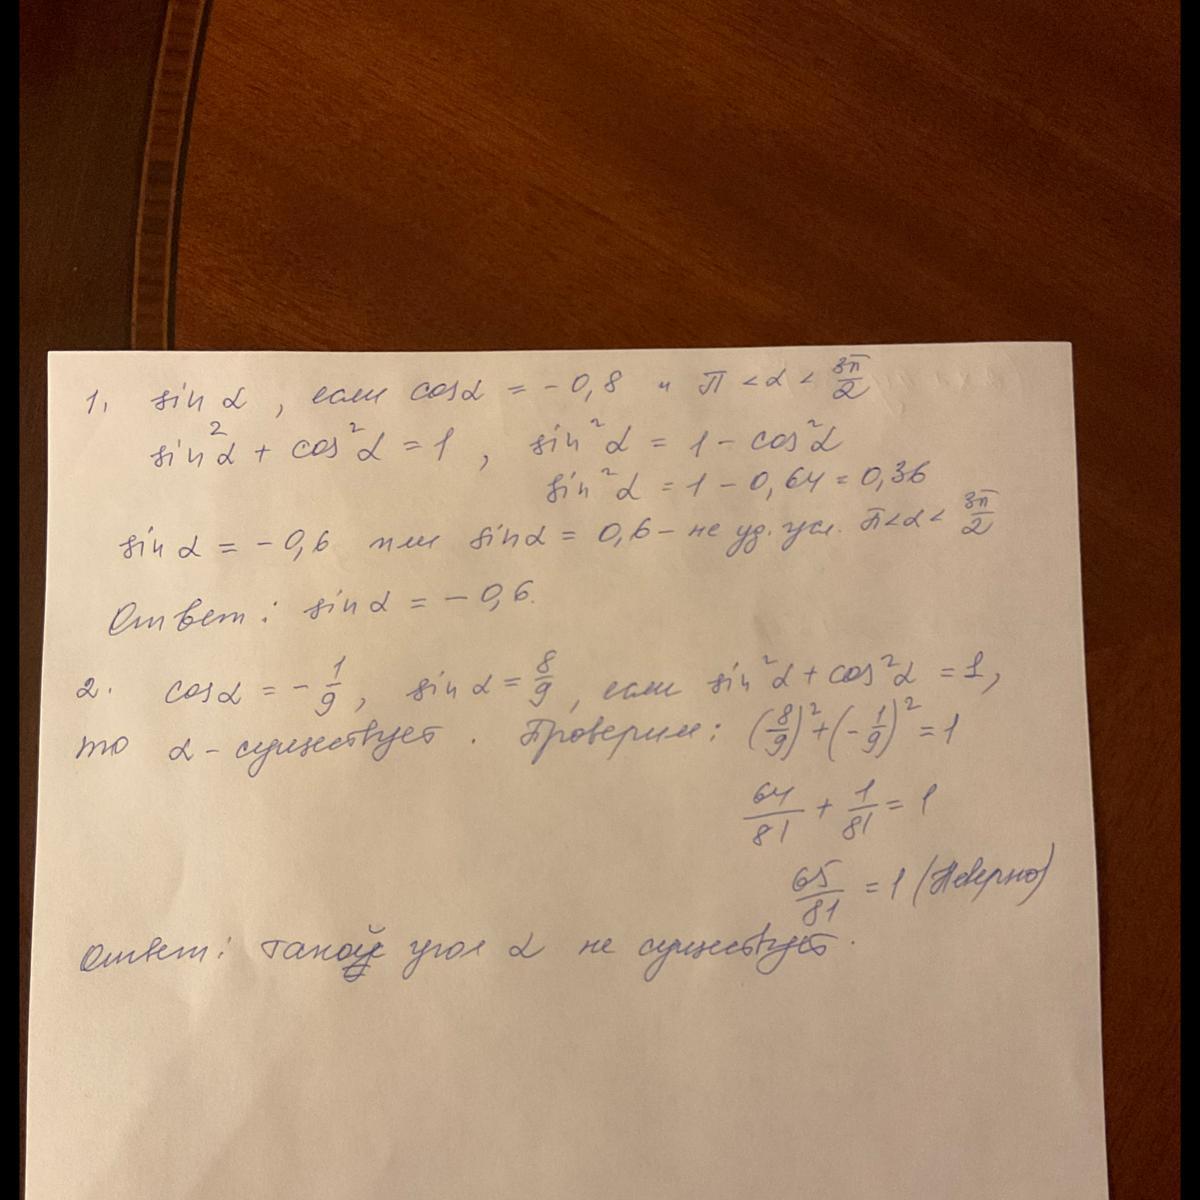 1, sin α, если cosα = -0,8 и π < α < 3π/2
sin²α + cos²α = 1, sin²α = 1 - cos²α
sin²α = 1 - 0,64 = 0,36
sin α = -0,6 или sinα = 0,6 - не уд. усл. π<α< 3π/2
Ответ: sinα = -0,6.
2. cosα = -1/9, sin α = 8/9, если sin²α + cos²α = 1,
то α - существует. Проверим: (8/9)² + (-1/9)² = 1
64/81 + 1/81 = 1
65/81 = 1 (Неверно)
Ответ: такой угол α не существует.